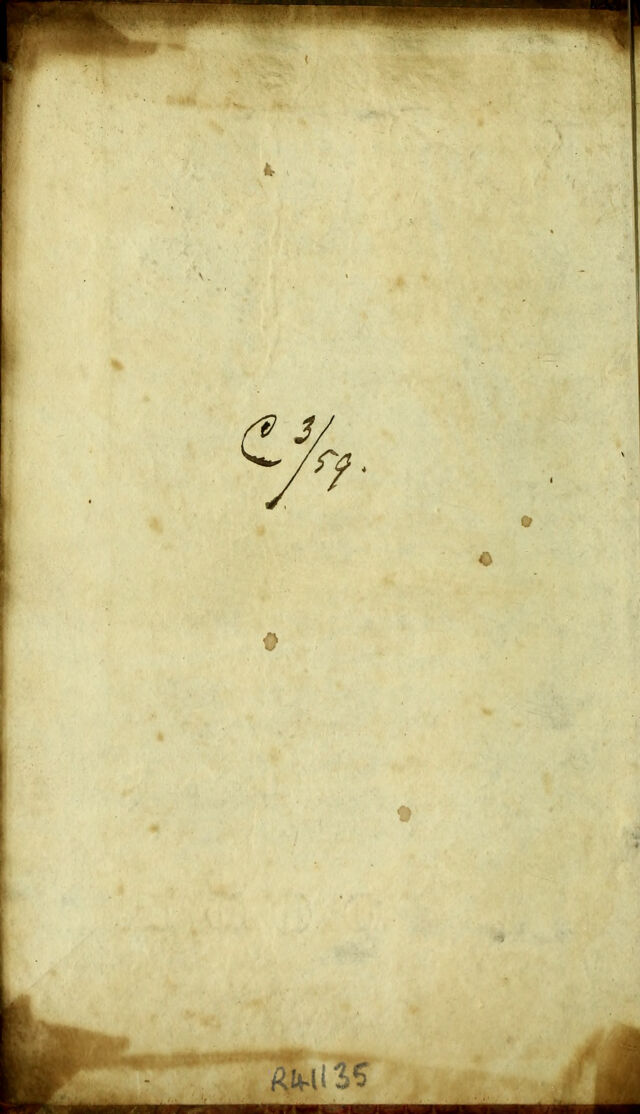 C 3/59.
R41135